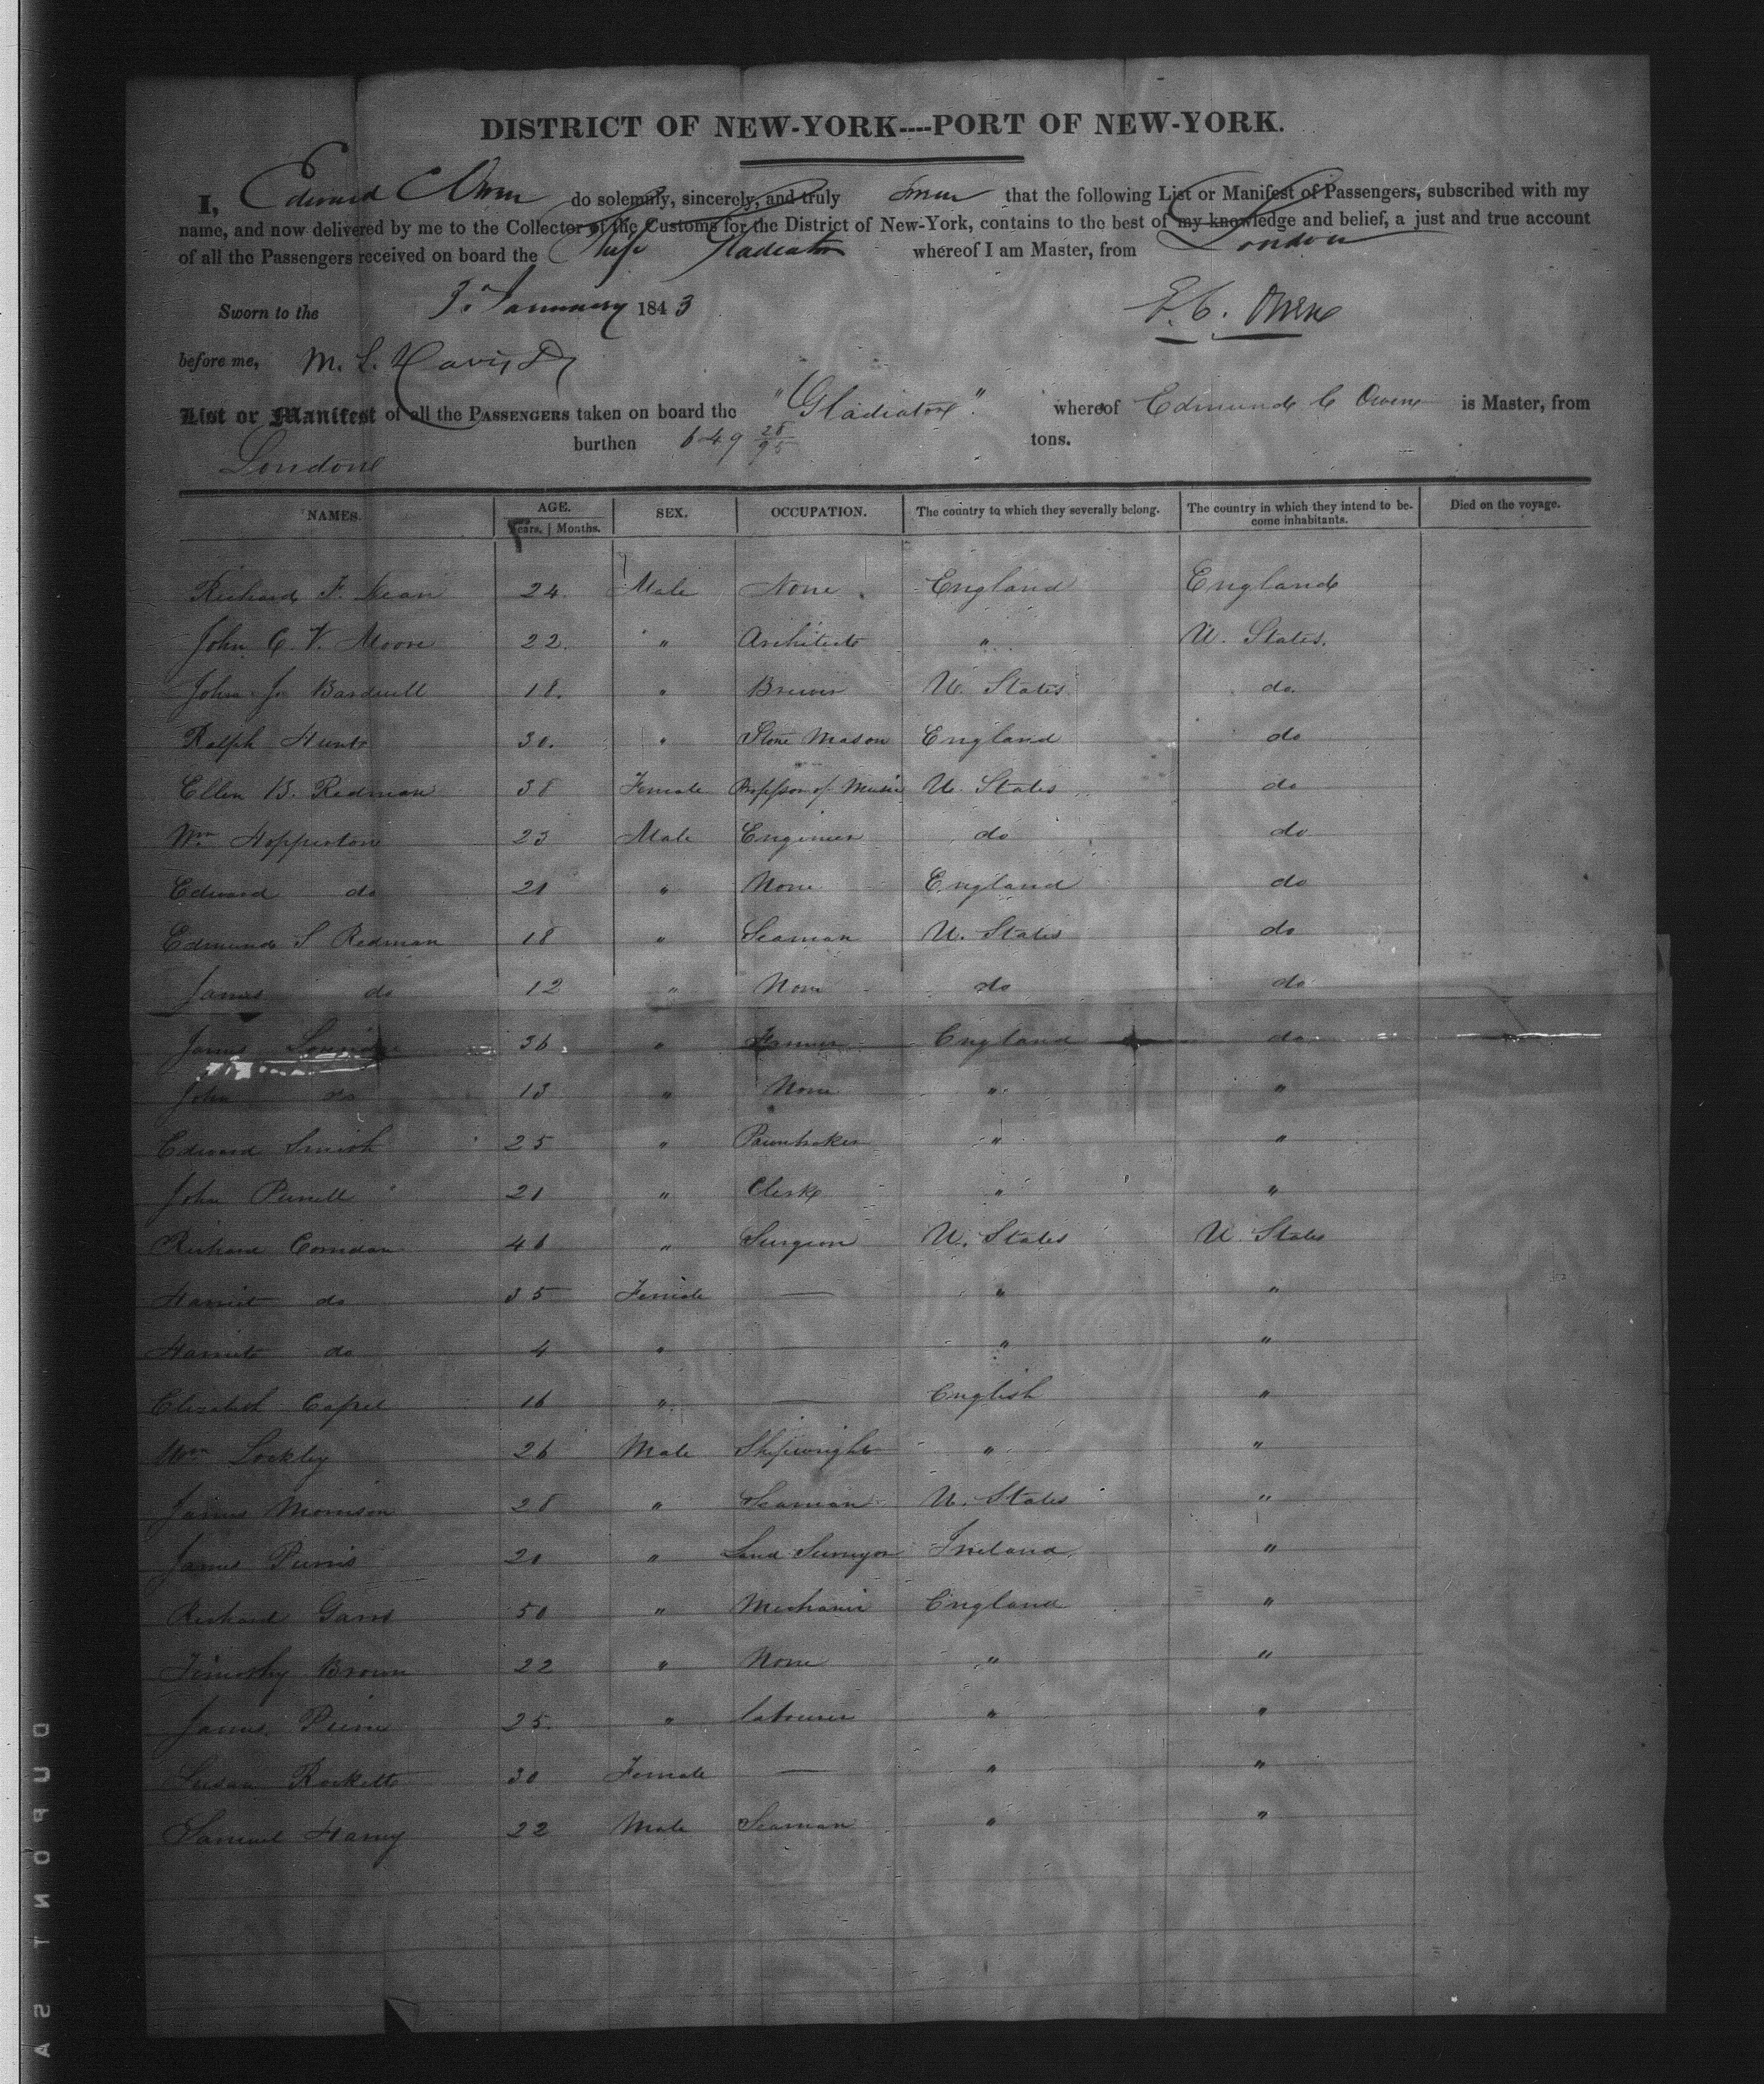 DISTRICT OF NEW-YORK----PORT OF NEW-YORK.
I, Edward C Owen do solemnly, sincerely, and truly swear that the following List or Manifest of Passengers, subscribed with my
name, and now delivered by me to the Collector of the Customs for the District of New-York, contains to the best of my knowledge and belief, a just and true account
of all the Passengers received on board the Ship Gladiator whereof I am Master, from London
Sworn to the 3. January 1843 E. C. Owen
before me, M. L. Davis
List or Manifest of all the PASSENGERS taken on board the "Gladiator" whereof Edmund C Owen is Master, from
London burthen 649 28/95 tons.
NAMES. AGE. SEX. OCCUPATION. The country to which they severally belong. The country in which they intend to be- Died on the voyage.
Years. | Months. come inhabitants.
Richard F. Dean 24. Male None. England England
John C. V. Moore 22. " Architect " U. States.
John J. Bardwell 18. " Brewer U. States do.
Ralph Hunt 30. " Stone Mason England do
Ellen B. Redman 38 Female Professor of Music U. States do
Wm Hopperton 23 Male Engineer do do
Edward do 21 " None England do
Edmund S Redman 18 " Seaman U. States do
James do 12 " None do do
James 36 " Farmer England do
John do 13 " None " "
Edward Smith 25 " Pawnbroker " "
John Purcell 21 " Clerk " "
Richard 46 " Surgeon U. States U States
Harriet do 35 Female — " "
Harriet do 4 " " "
Elizabeth Capel 16 " — English "
Wm Lockley 26 Male Shipwright " "
James Morrison 28 " Seaman U. States "
James Purvis 20 " Land Surveyor Ireland "
Richard 50 " Mechanic England "
Timothy Brown 22 " None " "
James 25. " labourer " "
Susan Rockett 30 Female — " "
Samuel Harvey 22 Male Seaman " "
AS TNOPUD